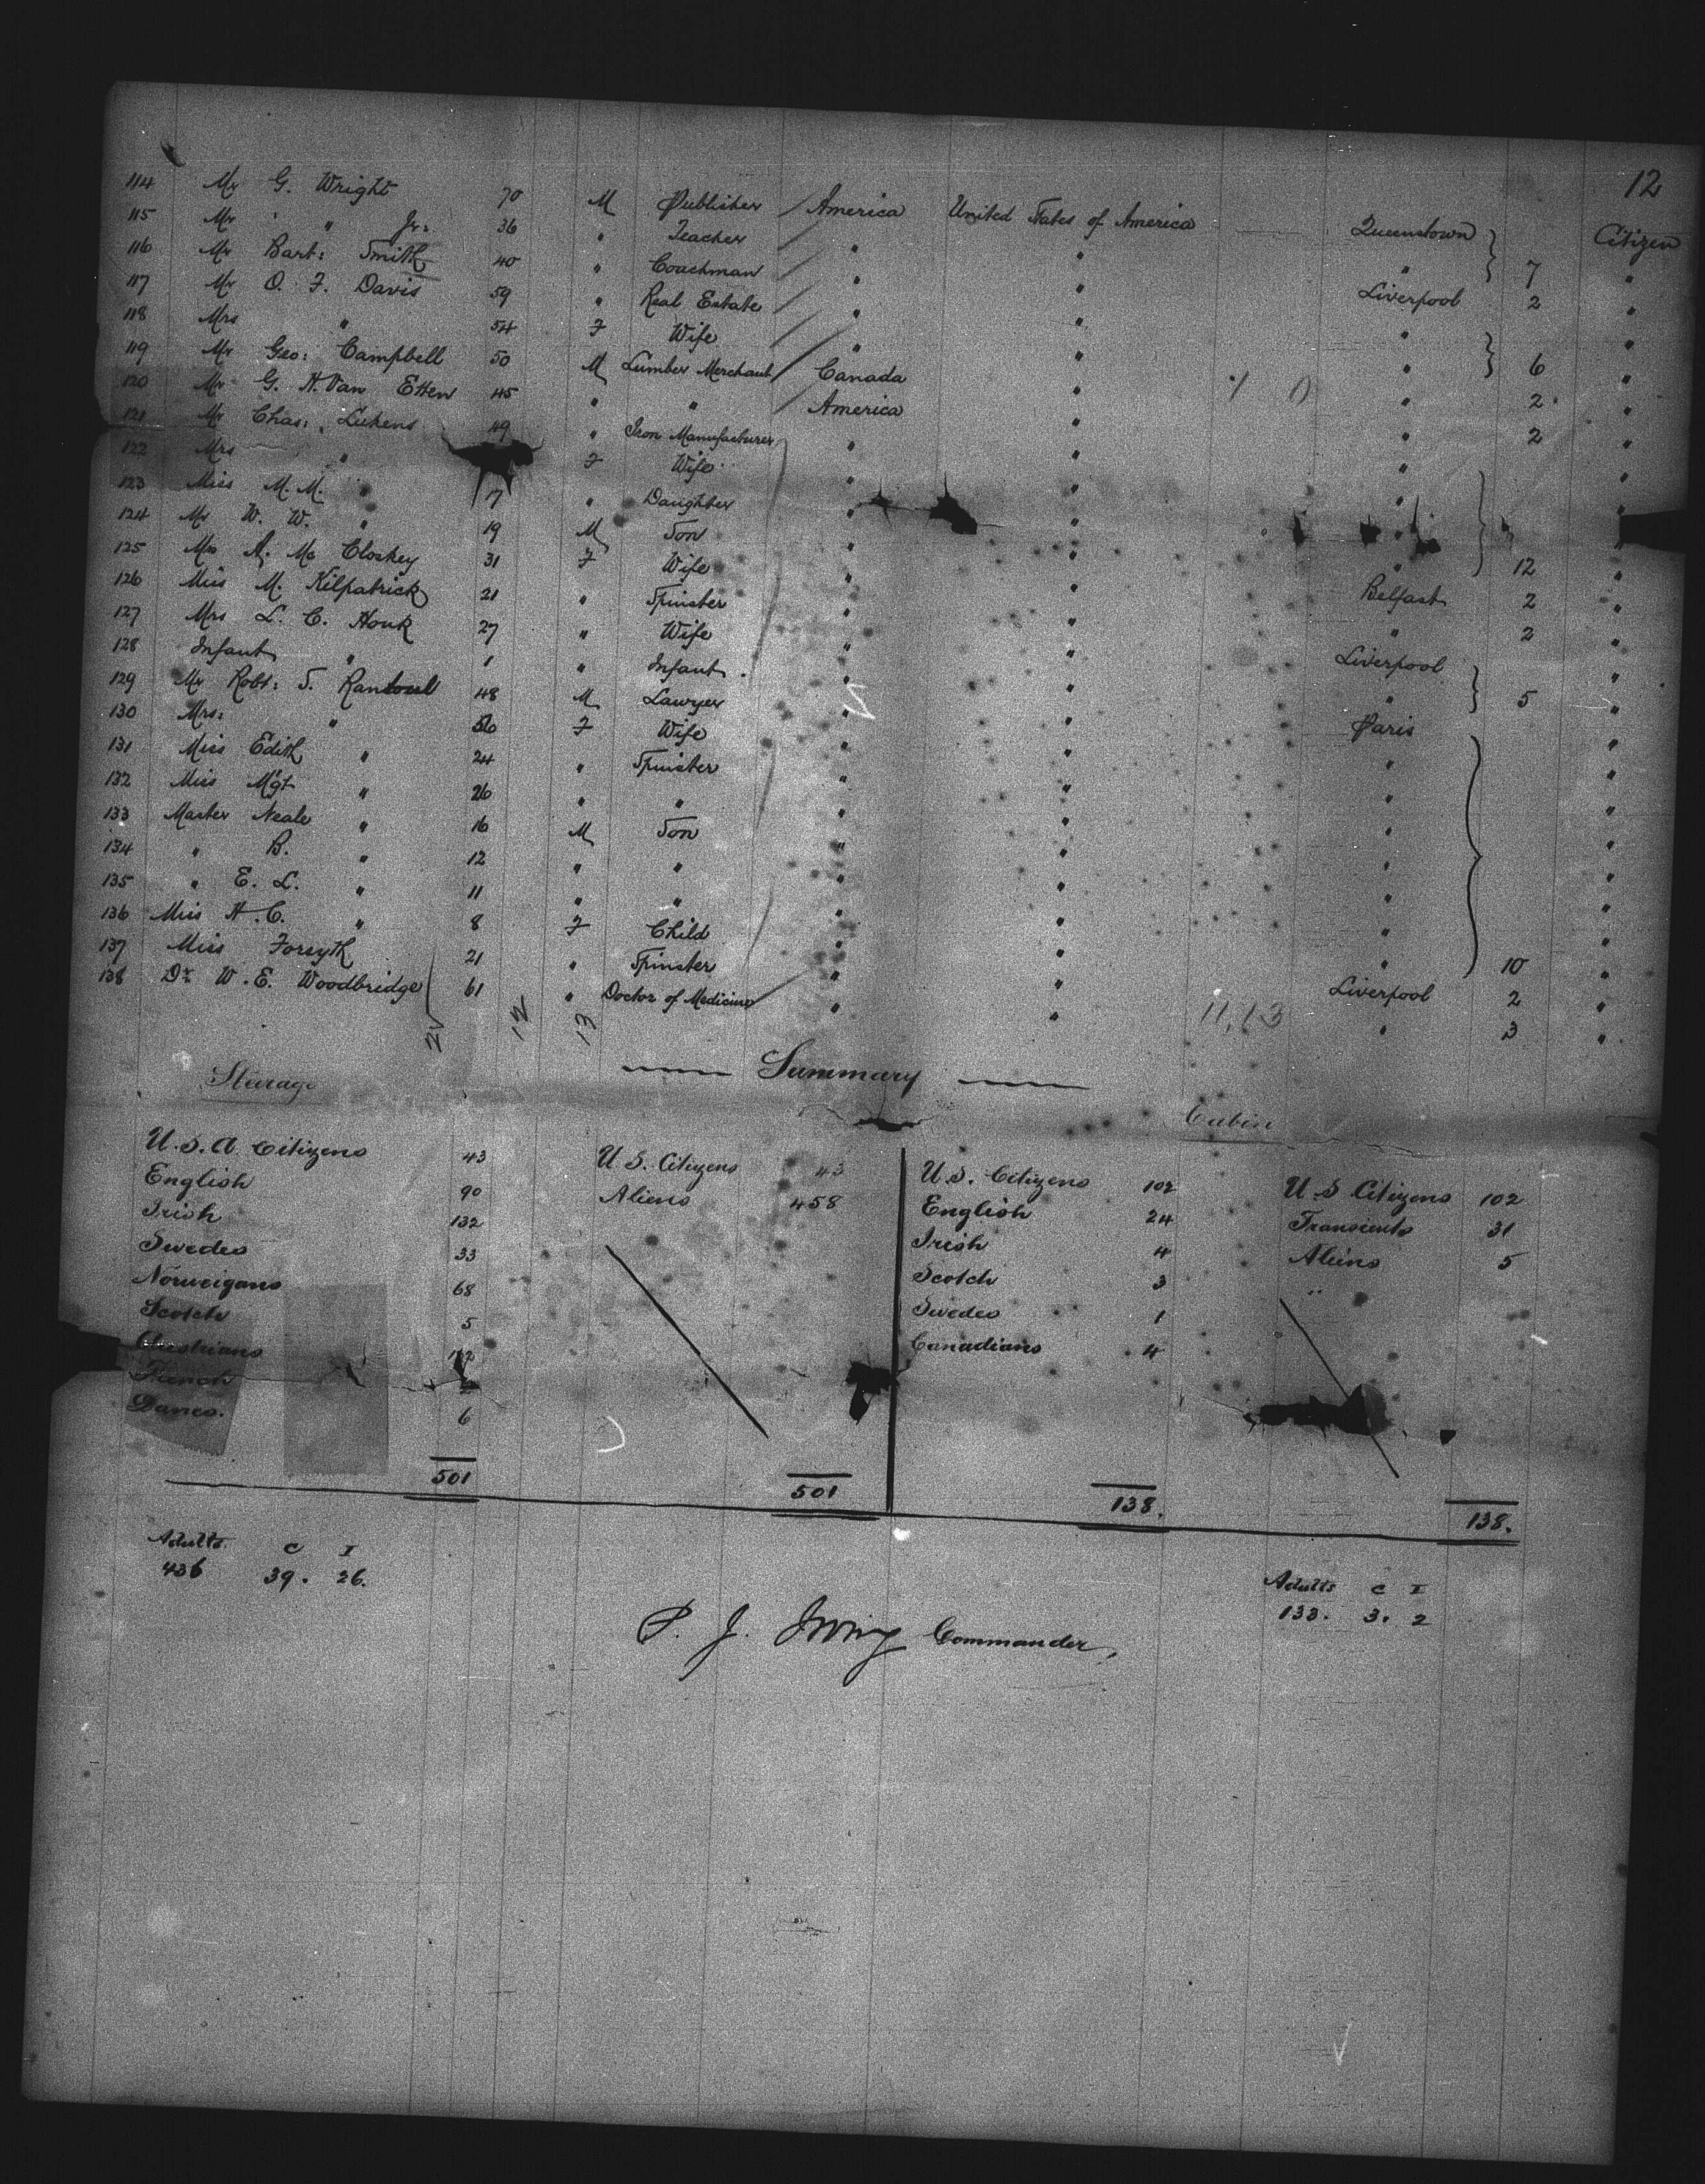 12
114 Mr G. Wright 70 M Publisher America United States of America Queenstown Citizen
115 Mr " " Jr: 36 " Teacher " " " 7 "
116 Mr Bart: Smith 40 " Coachman " " Liverpool 2 "
117 Mr O. F. Davis 59 " Real Estate " " " "
118 Mrs " 54 F Wife " " " 6 "
119 Mr Geo: Campbell 50 M Lumber Merchant Canada " " 2 "
120 Mr G. H. Van Etten 45 " " America " " 2 "
121 Mr Chas: Lukens 49 " Iron Manufacturer " " " "
122 Mrs " F Wife " " " "
123 Miss M. M. " 17 " Daughter " " "
124 Mr W. W. " 19 M Son " " " 12 "
125 Mrs A. Mc Closkey 31 F Wife " " Belfast 2 "
126 Miss M. Kilpatrick 21 " Spinster " " " 2 "
127 Mrs L. C. Houk 27 " Wife " " Liverpool "
128 Infant " 1 " Infant " " " 5 "
129 Mr Robt: S. Rantoul 48 M Lawyer " " Paris "
130 Mrs: " 50 F Wife " " " "
131 Miss Edith " 24 " Spinster " " " "
132 Miss Mgt " 26 " " " " " "
133 Master Neale " 16 M Son " " " "
134 " B. " 12 " " " " " "
135 " E. L. " 11 " " " " " "
136 Miss H. C. " 8 F Child " " " 10 "
137 Miss Forsyth 21 " Spinster " " Liverpool 2 "
138 Dr W. E. Woodbridge 61 " Doctor of Medicine " " " 3 "
12 13 11.13
Summary
Steerage Cabin
U.S.A. Citizens 43 U.S. Citizens 43 U.S. Citizens 102 U.S Citizens 102
English 90 Aliens 458 English 24 Transients 31
Irish 132 Irish 4 Aliens 5
Swedes 33 Scotch 3
Norweigans 68 Swedes 1
Scotch 5 Canadians 4
French
Danes. 6
501 501 138. 138.
Adults C I Adults C I
436 39. 26. 133. 3. 2
P. J. Irving Commander,